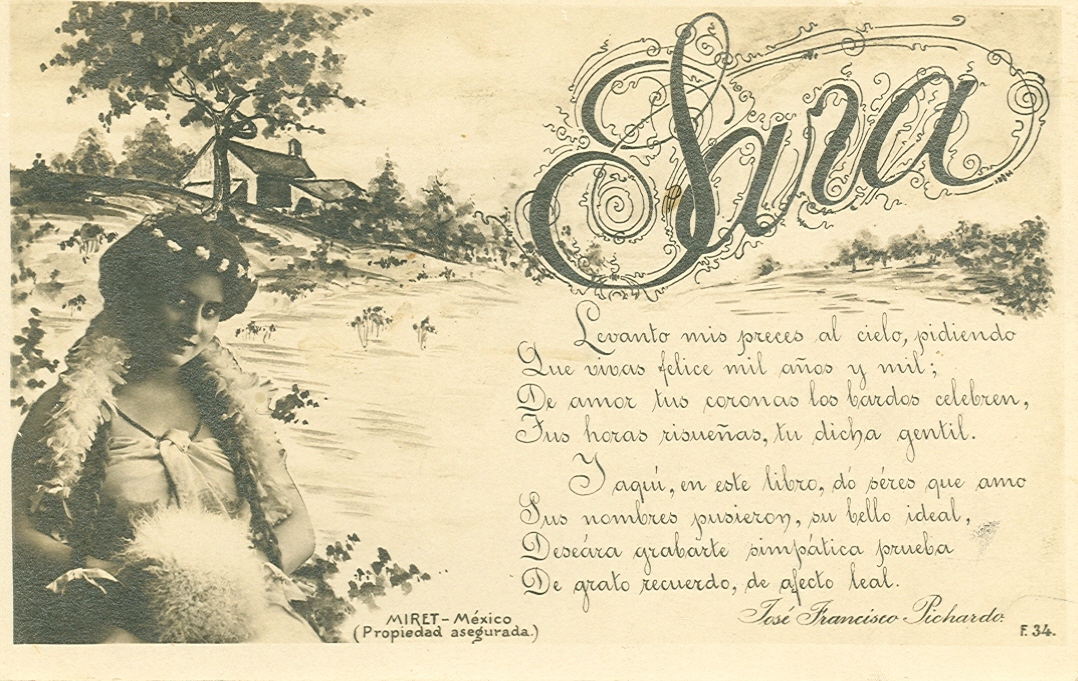 Sara
Levanto mis preces al cielo, pidiendo
Que vivas felice mil años y mil;
De amor tus coronas los bardos celebren,
Tus horas risueñas, tu dicha gentil.
Y aquí, en este libro, dó séres que amo
Sus nombres pusieron, su bello ideal,
Deseára grabarte simpática prueba
De grato recuerdo, de afecto leal.
José Francisco Pichardo.
MIRET - México
(Propiedad asegurada.)
F. 34.